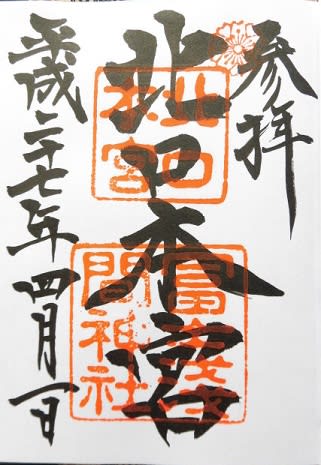 参拝
北口本宮
平成二十七年四月一日
北口
本宮
冨士浅
間神社